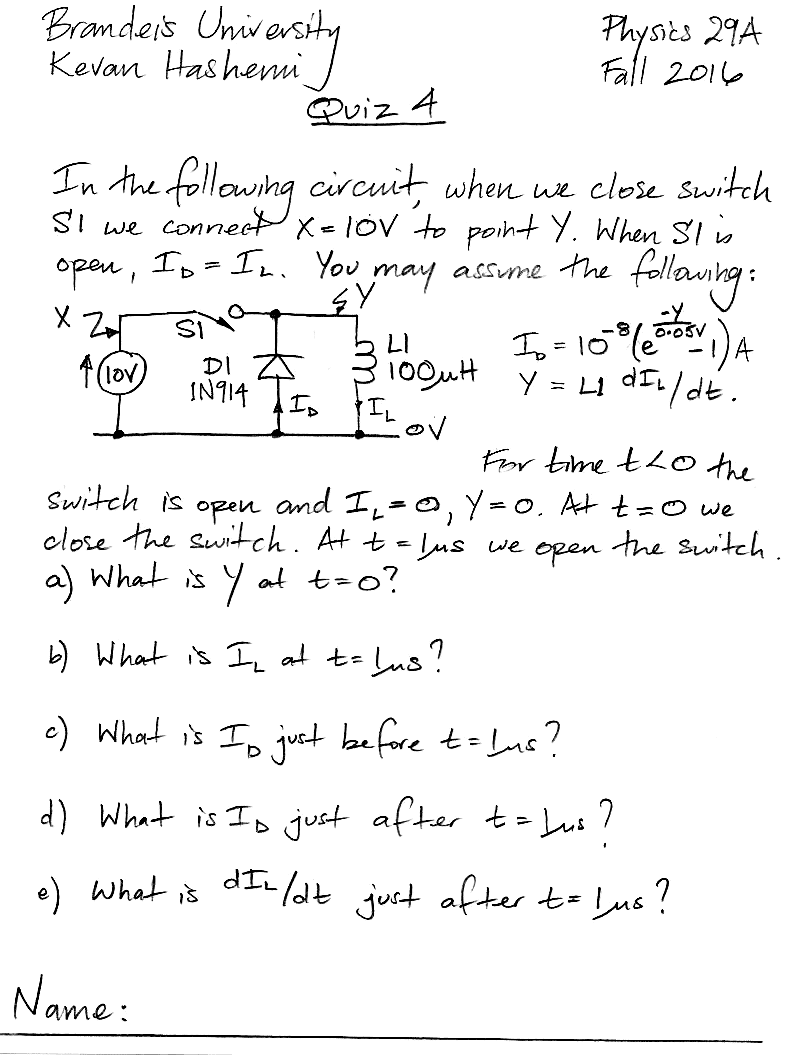 Brandeis University Physics 29A
Kevan Hashemi Fall 2016
Quiz 4
In the following circuit, when we close switch
S1 we connect X = 10V to point Y. When S1 is
open, I_D = I_L. You may assume the following:
X S1 Y
10V D1 1N914 I_D L1 100μH I_L 0V
I_D = 10^-8 (e^(-Y/0.05V) - 1) A
Y = L1 dI_L/dt.
For time t<0 the
switch is open and I_L = 0, Y = 0. At t = 0 we
close the switch. At t = 1μs we open the switch.
a) What is Y at t=0?
b) What is I_L at t= 1μs?
c) What is I_D just before t= 1μs?
d) What is I_D just after t= 1μs?
e) What is dI_L/dt just after t= 1μs?
Name: